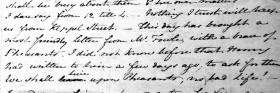 shall be busy about them & her own matters
I dare say from 12 till 4. — Nothing I trust will keep
us from Keppel Street. — This day has brought a
most friendly Letter from Mr. Fowle, with a brace of
Pheasants. I did not know before that Henry
had written to him a few days ago, to ask for them
We shall live upon Pheasants; no bad Life!